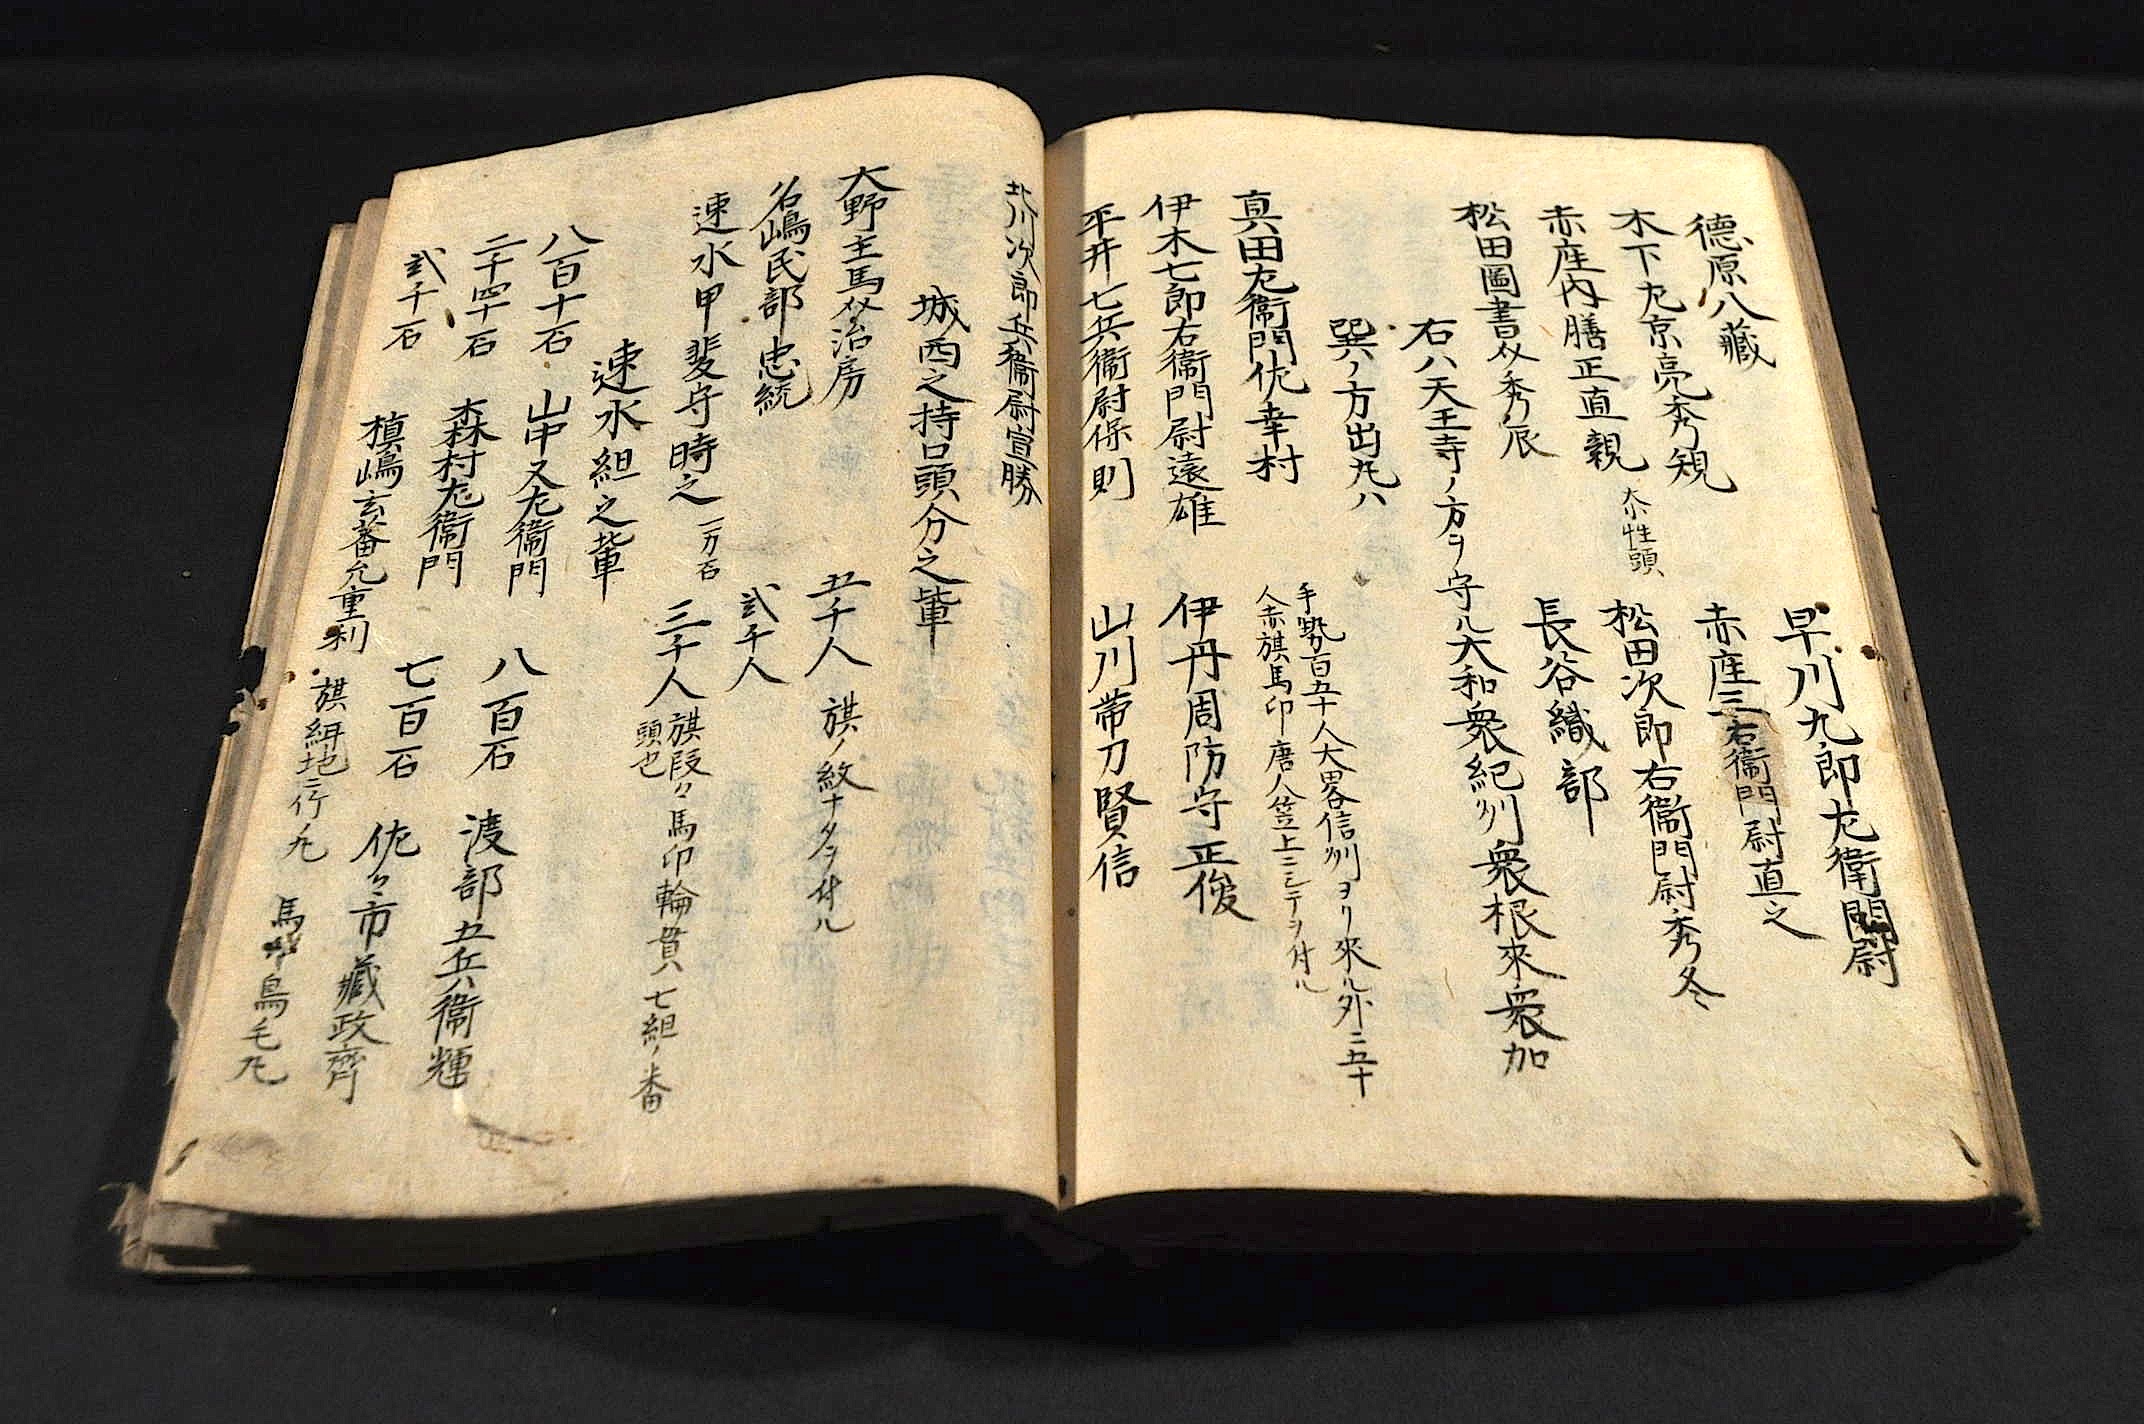 德原八藏　早川九郎左衛門尉
木下左京亮秀規　赤座三右衛門尉直之
赤座内膳正直親　松田次郎右衛門尉秀冬
松田圖書𠆢秀辰　長谷織部
右八天王寺ノ方ヲ守ル大和衆紀州衆根來衆加
巽ノ方出丸ハ
真田左衛門佐幸村　手勢百五十人大畧信州ヨリ來ル外ニ五十
人赤旗馬印唐人笠上ニシテヲ付ル
伊木七郎右衛門尉遠雄　伊丹周防守正俊
平井七兵衛尉保則　山川帯刀賢信
北川次郎兵衛尉宣勝
城西之持口頭分之輩
大野主馬𠆢治房　五千人　旗ノ紋ナタヲ付ル
名嶋民部忠統　弐千人
速水甲斐守時之　一万石　三千人　旗段々馬印輪貫七組ノ番
頭也
速水組之輩
八百十石　山中又左衛門　八百石　渡部五兵衛輝
二千四十石　森村左衛門　七百石　佐々市藏政齊
弐千石　槙嶋玄蕃允重利　旗　地ニ　丸　馬　鳥毛丸